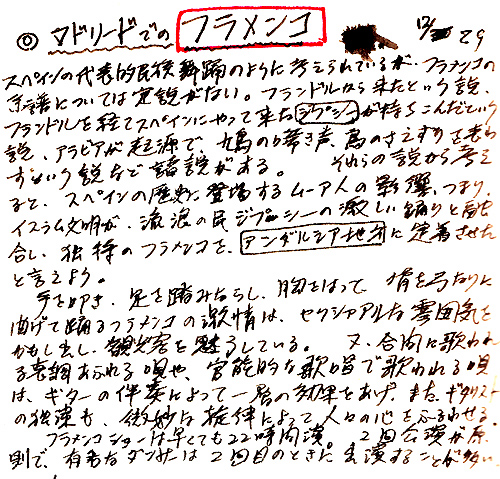 ◎ マドリードでの フラメンコ 12/29
スペインの代表的民俗舞踊のように考えられているが、フラメンコの
系譜については定説がない。フランドルから来たという説、
フランドルを経てスペインにやって来たジプシーが持ちこんだという
説、アラビアが起源で、鳥の鳴き声、鳥のさえずりを表わ
すという説など諸説がある。 それらの説から考え
ると、スペインの歴史に登場するムーア人の影響、つまり、
イスラム文明が、流浪の民ジプシーの激しい踊りと融
合し、独特のフラメンコを、アンダルシア地方に定着させた
と言えよう。
手を叩き、足を踏みならし、胸をはって 背を弓なりに
曲げて踊るフラメンコの激情は、セクシュアルな雰囲気を
かもし出し、観光客を魅了している。 又、合間に歌われ
る哀調あふれる唄や、官能的な歌唱で歌われる唄
は、ギターの伴奏によって一層の効果をあげ、また、ギタリスト
の独演も、微妙な旋律によって人々の心をふるわせる。
フラメンコショーは早くても22時開演。 2回公演が原
則で、有名なダンサーは2回目のときに出演することが多い。